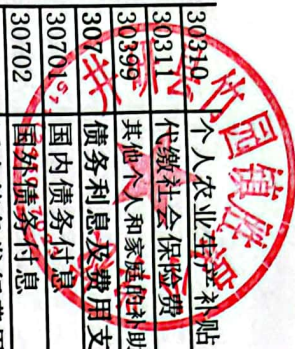 30310 个人农业生产补贴
30311 代缴社会保险费
30399 其他个人和家庭的补助
307 债务利息及费用支
30701 国内债务付息
30702 国外债务付息
竹园镇